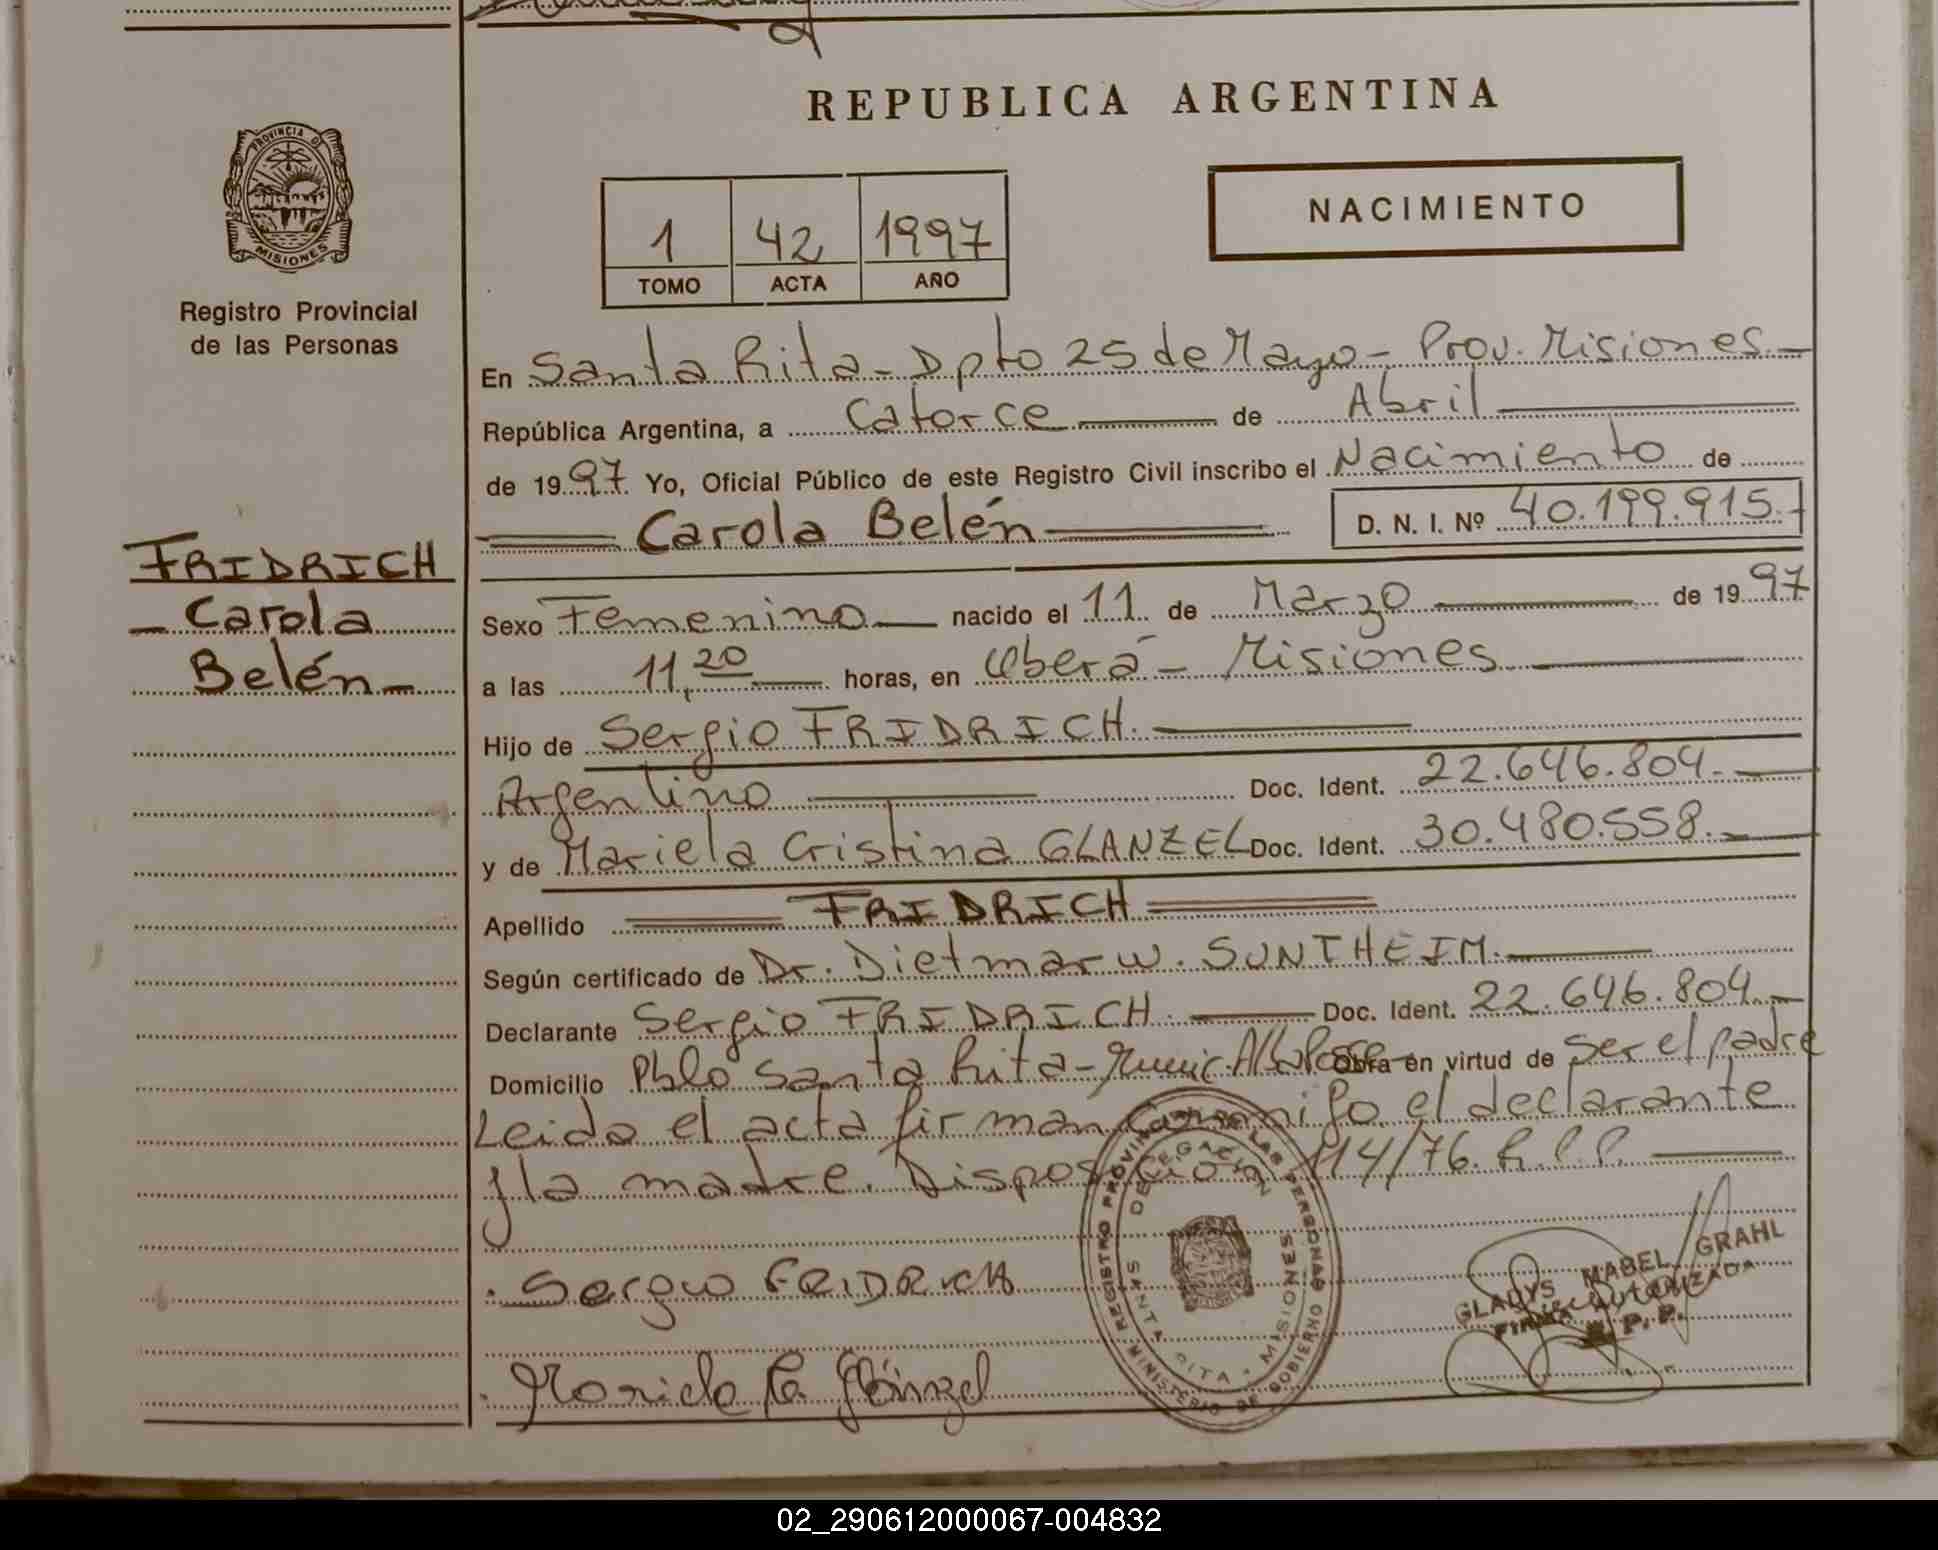 REPUBLICA ARGENTINA
PROVINCIA DE MISIONES
Registro Provincial
de las Personas
1 42 1997
TOMO ACTA AÑO
NACIMIENTO
En Santa Rita - Dpto 25 de Mayo - Prov. Misiones.-
República Argentina, a Catorce de Abril
de 1997. Yo, Oficial Público de este Registro Civil inscribo el Nacimiento de
Carola Belén D. N. I. Nº 40.199.915.-
FRIDRICH
Carola
Belén
Sexo Femenino nacido el 11 de Marzo de 1997
a las 11,20 horas, en Oberá - Misiones
Hijo de Sergio FRIDRICH.
Argentino Doc. Ident. 22.646.804.
y de Mariela Cristina GLANZEL Doc. Ident. 30.480.558.
Apellido FRIDRICH
Según certificado de Dr. Dietmar W. SUNTHEIM.
Declarante Sergio FRIDRICH. Doc. Ident. 22.646.804.
Domicilio Pblo Santa Rita - Munic. Alba Posse Obra en virtud de ser el padre
Leida el acta firman conmigo el declarante
y la madre. Disposición 114/76. R.P.P.
REGISTRO PROVINCIAL DE LAS PERSONAS
DELEGACION
SANTA RITA - MISIONES
MINISTERIO DE GOBIERNO
Sergio FRIDRICH
Mariela C. Glänzel
GLADYS MABEL GRAHL
FIRMA AUTORIZADA
R. P. P.
02_290612000067-004832